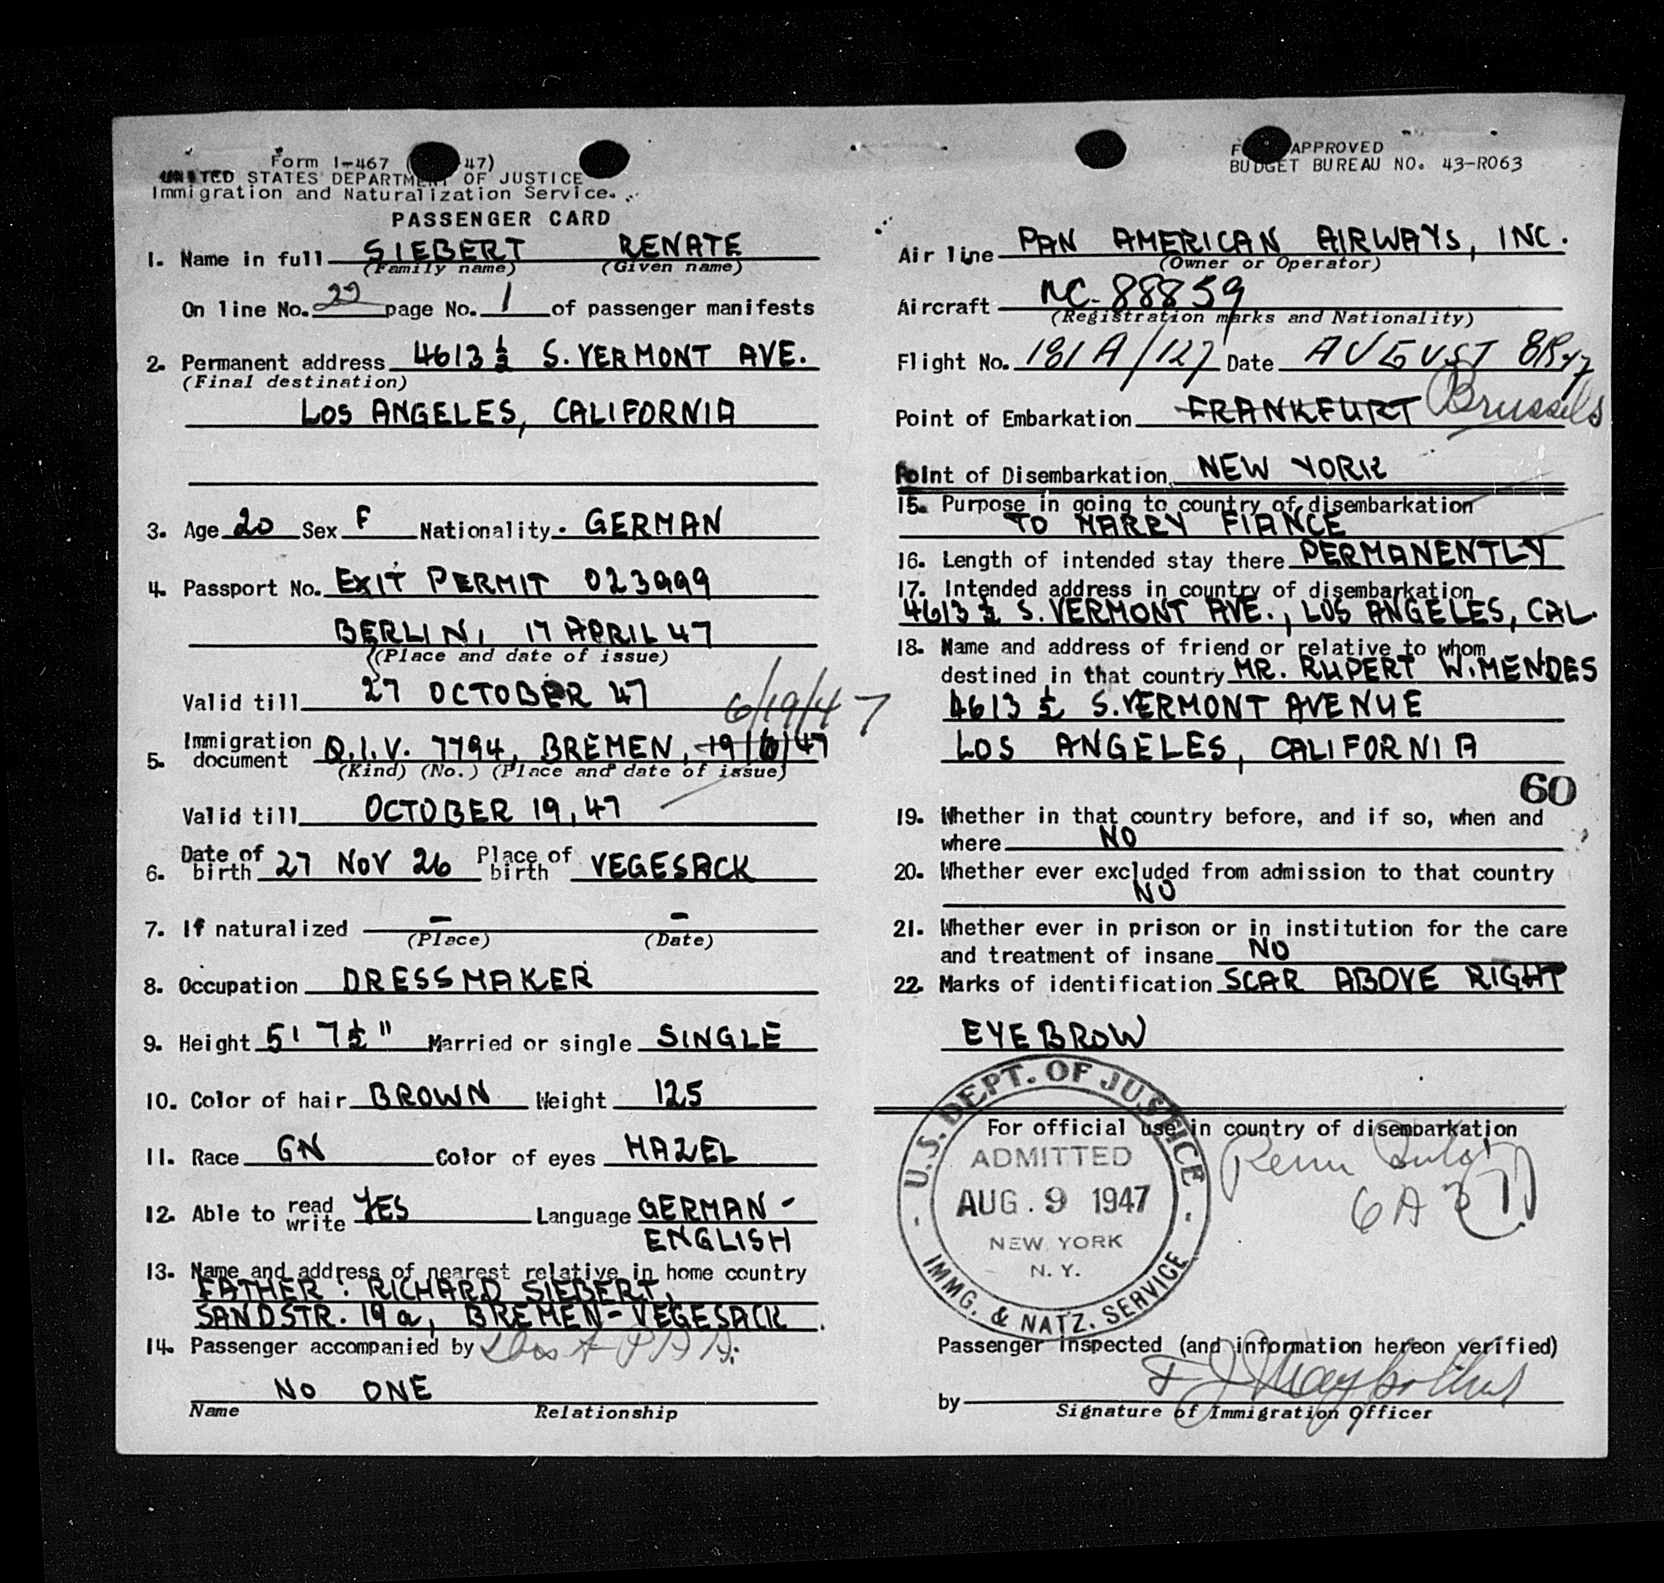 Form I-467 ( 47)
UNITED STATES DEPARTMENT OF JUSTICE
Immigration and Naturalization Service.
PASSENGER CARD
1. Name in full SIEBERT RENATE
(Family name) (Given name)
On line No. 22 page No. 1 of passenger manifests
2. Permanent address 4613 ½ S. VERMONT AVE.
(Final destination)
LOS ANGELES, CALIFORNIA
3. Age 20 Sex F Nationality. GERMAN
4. Passport No. EXIT PERMIT 023999
BERLIN, 17 APRIL 47
(Place and date of issue)
Valid till 27 OCTOBER 47
6/19/47
5. Immigration document Q.I.V. 7794, BREMEN, 19/6/47
(Kind) (No.) (Place and date of issue)
Valid till OCTOBER 19, 47
6. Date of birth 27 NOV 26 Place of birth VEGESACK
7. If naturalized – –
(Place) (Date)
8. Occupation DRESSMAKER
9. Height 5' 7½" Married or single SINGLE
10. Color of hair BROWN Weight 125
11. Race GN Color of eyes HAZEL
12. Able to read write YES Language GERMAN -
ENGLISH
13. Name and address of nearest relative in home country
FATHER: RICHARD SIEBERT,
SANDSTR. 19a, BREMEN-VEGESACK.
14. Passenger accompanied by
NO ONE
Name Relationship
APPROVED
BUDGET BUREAU NO. 43-R063
Air line PAN AMERICAN AIRWAYS, INC.
(Owner or Operator)
Aircraft NC-88859
(Registration marks and Nationality)
Flight No. 181A/127 Date AUGUST 8R47
Point of Embarkation FRANKFURT Brussels
Point of Disembarkation NEW YORK
15. Purpose in going to country of disembarkation
TO MARRY FIANCE
16. Length of intended stay there PERMANENTLY
17. Intended address in country of disembarkation
4613 ½ S. VERMONT AVE., LOS ANGELES, CAL.
18. Name and address of friend or relative to whom
destined in that country MR. RUPERT W. MENDES
4613 ½ S. VERMONT AVENUE
LOS ANGELES, CALIFORNIA
60
19. Whether in that country before, and if so, when and
where NO
20. Whether ever excluded from admission to that country
NO
21. Whether ever in prison or in institution for the care
and treatment of insane NO
22. Marks of identification SCAR ABOVE RIGHT
EYEBROW
For official use in country of disembarkation
U.S. DEPT. OF JUSTICE
ADMITTED
AUG. 9 1947
NEW YORK
N. Y.
IMMG. & NATZ. SERVICE
Passenger inspected (and information hereon verified)
by
Signature of Immigration Officer